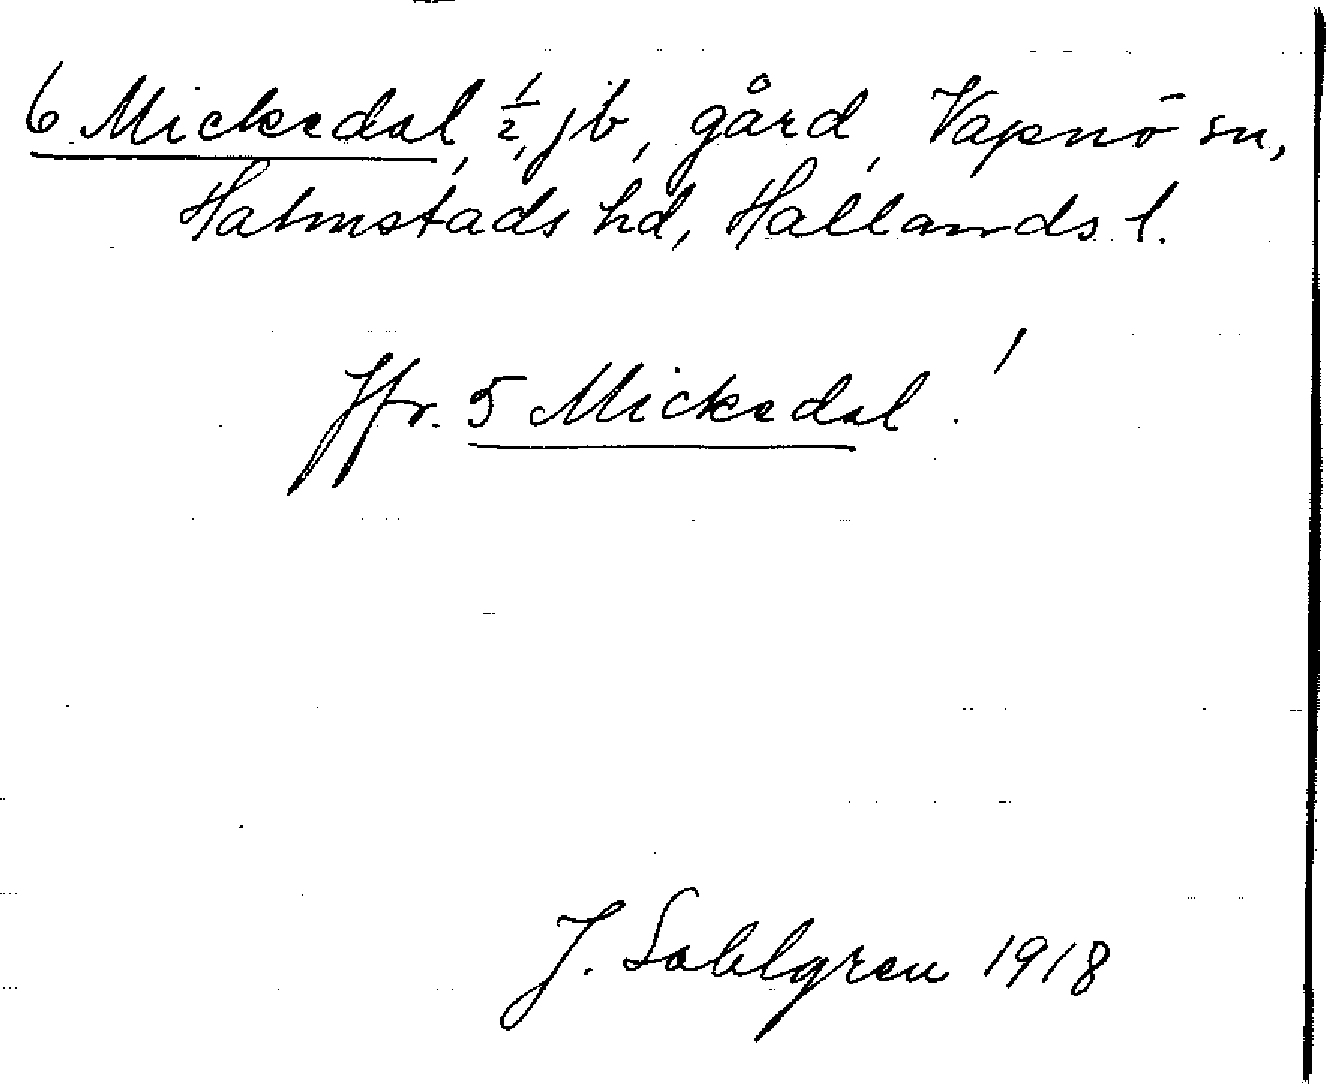 6 Mickedal, ½, jb, gård, Vapnö sn,
Halmstads hd, Hallands l.
Jfr. 5 Mickedal!
J. Sahlgren 1918